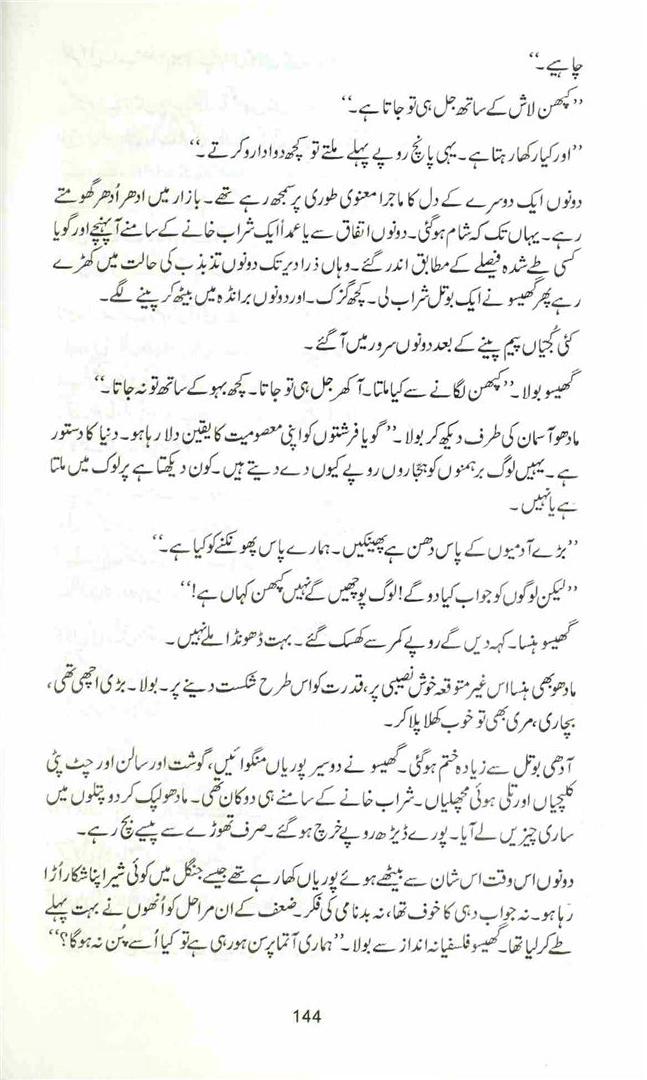 چاہیے۔‘‘
’’کپھن لاش کے ساتھ جل ہی تو جاتا ہے۔‘‘
’’اور کیا رکھا رہتا ہے۔ یہی پانچ روپے پہلے ملتے تو کچھ دوا دارو کرتے۔‘‘
دونوں ایک دوسرے کے دل کا ماجرا معنوی طوری پر سمجھ رہے تھے۔ بازار میں ادھر اُدھر گھومتے
رہے۔ یہاں تک کہ شام ہو گئی۔ دونوں اتفاق سے یا عمداً ایک شراب خانے کے سامنے آ پہنچے اور گویا
کسی طے شدہ فیصلے کے مطابق اندر گئے۔ وہاں ذرا دیر تک دونوں تذبذب کی حالت میں کھڑے
رہے پھر گھیسو نے ایک بوتل شراب لی۔ کچھ گزک۔ اور دونوں برانڈہ میں بیٹھ کر پینے لگے۔
کئی کُجیاں پیم پینے کے بعد دونوں سرور میں آ گئے۔
گھیسو بولا۔ ’’کپھن لگانے سے کیا ملتا۔ آکھر جل ہی تو جاتا۔ کچھ بہو کے ساتھ تو نہ جاتا۔‘‘
مادھو آسمان کی طرف دیکھ کر بولا۔ ’’گویا فرشتوں کو اپنی معصومیت کا یقین دلا رہا ہو۔ دنیا کا دستور
ہے۔ یہیں لوگ برہمنوں کو ہجاروں روپے کیوں دے دیتے ہیں۔ کون دیکھتا ہے پرلوک میں ملتا
ہے یا نہیں۔
’’بڑے آدمیوں کے پاس دھن ہے پھینکیں۔ ہمارے پاس پھونکنے کو کیا ہے۔‘‘
’’لیکن لوگوں کو جواب کیا دو گے! لوگ پوچھیں گے نہیں کپھن کہاں ہے!‘‘
گھیسو ہنسا۔ کہہ دیں گے روپے کمر سے کھسک گئے۔ بہت ڈھونڈا ملے نہیں۔
مادھو بھی ہنسا اس غیر متوقعہ خوش نصیبی پر، قدرت کو اس طرح شکست دینے پر۔ بولا۔ بڑی اچھی تھی،
بچاری، مری بھی تو خوب کھلا پلا کر۔
آدھی بوتل سے زیادہ ختم ہو گئی۔ گھیسو نے دو سیر پوریاں منگوائیں، گوشت اور سالن اور چٹ پٹی
کلیجیاں اور تلی ہوئی مچھلیاں۔ شراب خانے کے سامنے ہی دوکان تھی۔ مادھو لپک کر دو پتلوں میں
ساری چیزیں لے آیا۔ پورے ڈیڑھ روپے خرچ ہو گئے۔ صرف تھوڑے سے پیسے بچ رہے۔
دونوں اس وقت اس شان سے بیٹھے ہوئے پوریاں کھا رہے تھے جیسے جنگل میں کوئی شیر اپنا شکار اُڑا
رہا ہو۔ نہ جواب دہی کا خوف تھا، نہ بدنامی کی فکر۔ ضعف کے ان مراحل کو اُنھوں نے بہت پہلے
طے کر لیا تھا۔ گھیسو فلسفیانہ انداز سے بولا۔ ’’ہماری آتما پرسن ہو رہی ہے تو کیا اُسے پُن نہ ہوگا؟‘‘
144